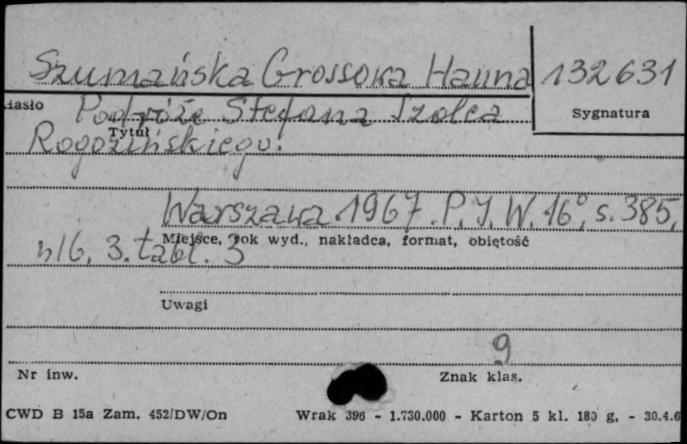 Szumańska Grossowa Hanna 132631
Hasło Podróże Stefana Szolca Sygnatura
Tytuł
Rogozińskiego.
Warszawa 1967. P.I.W. 16°, s. 385,
Miejsce, rok wyd., nakładca, format, objętość
nlb. 3. tabl. 3
Uwagi
9
Nr inw. Znak klas.
CWD B 15a Zam. 452/DW/On Wrak 396 - 1.730.000 - Karton 5 kl. 180 g. - 30.4.6